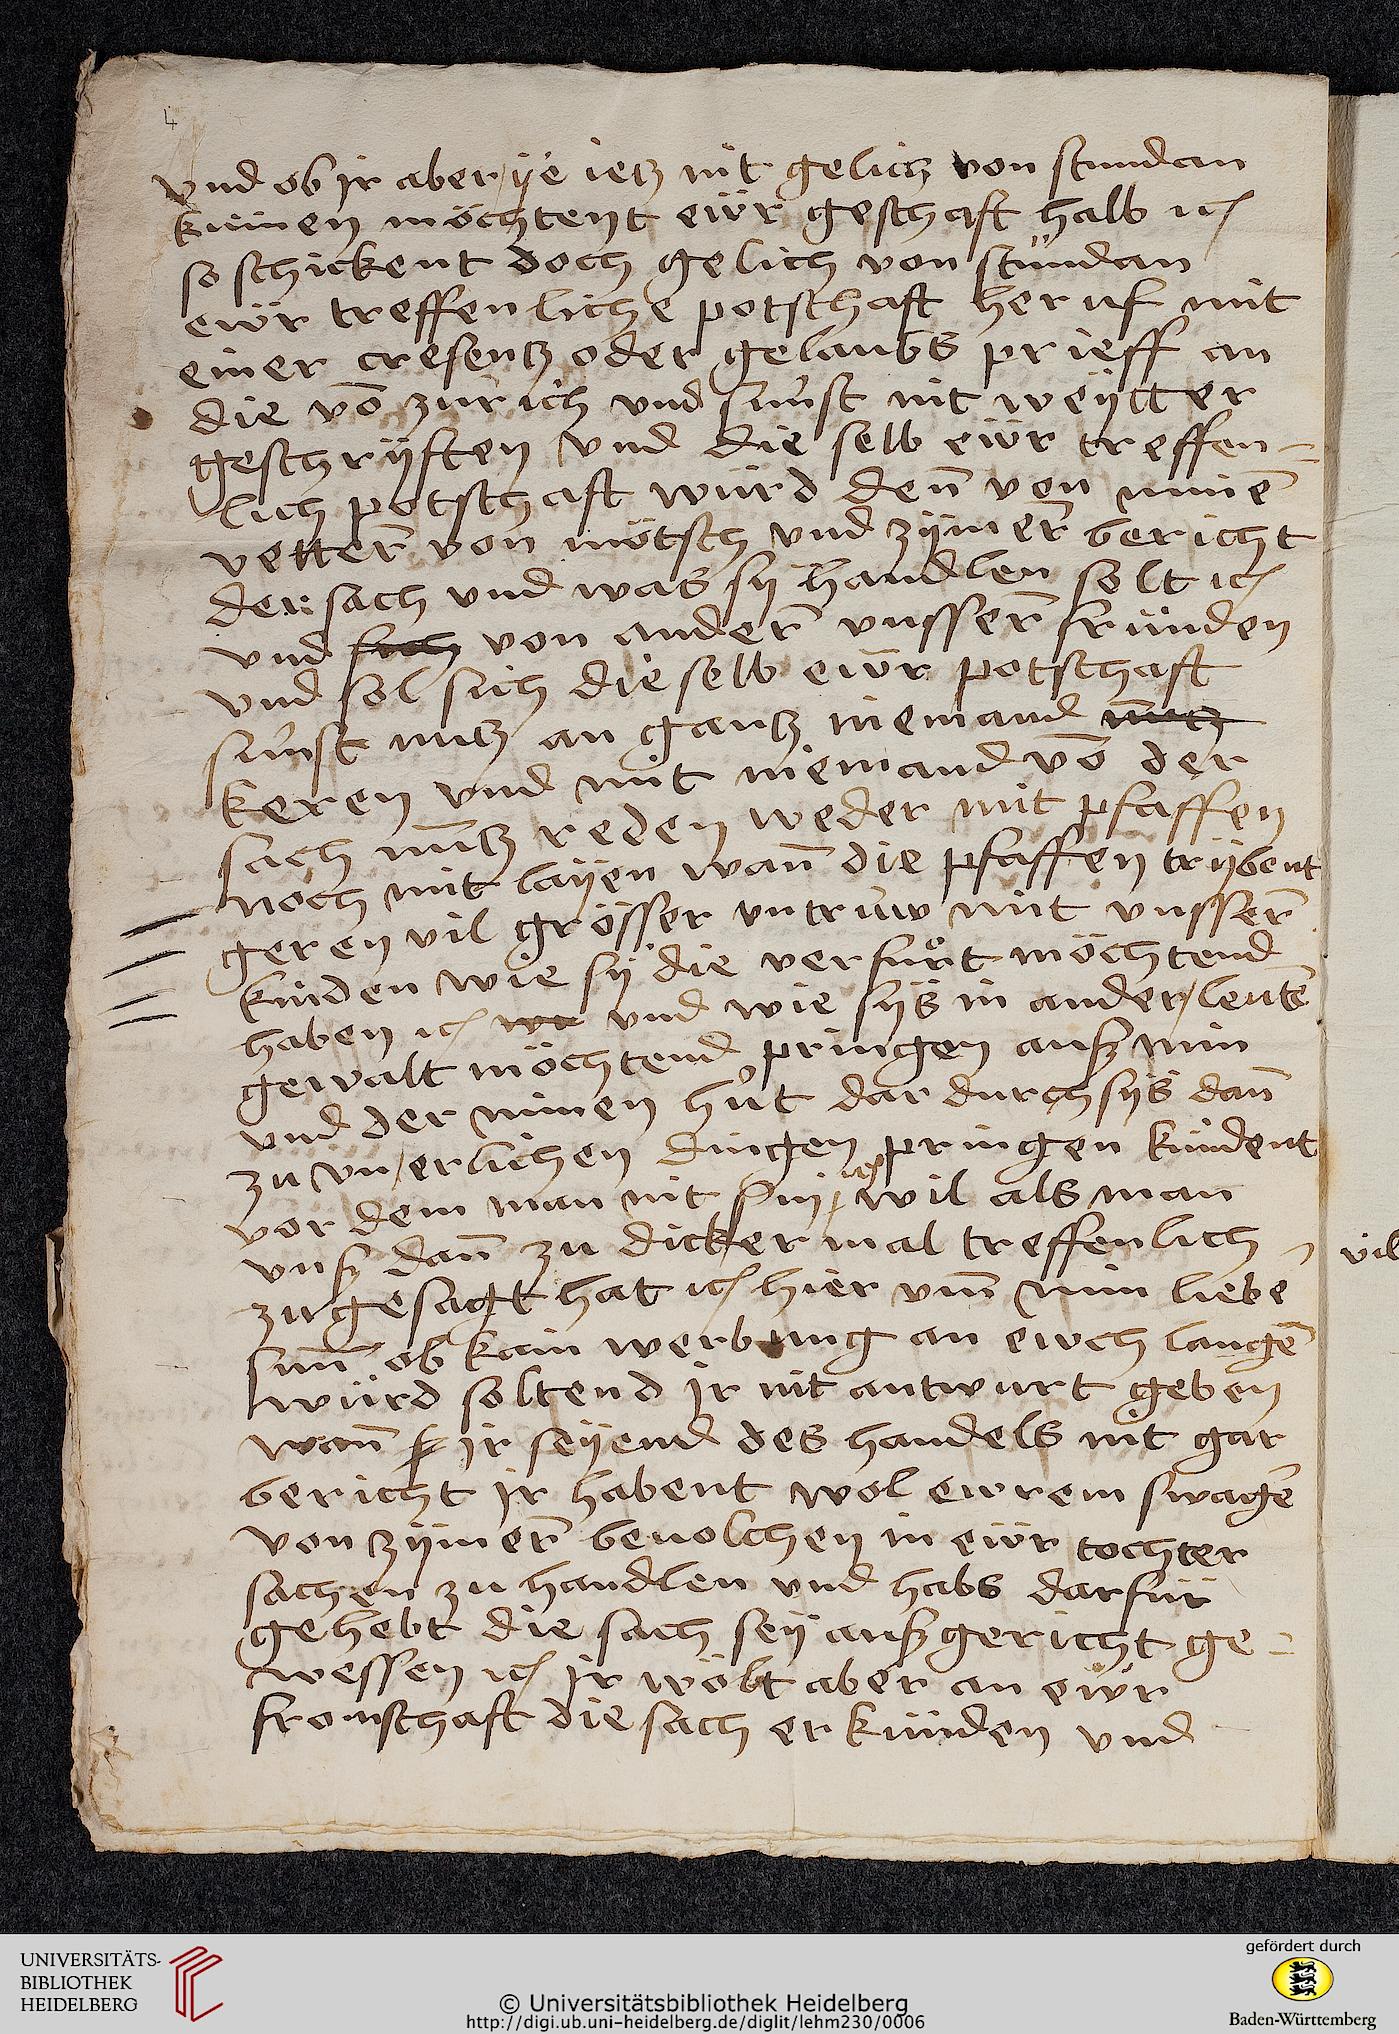 4
vnd ob ir aber ye ietz nit gelich von stundan
kumen möchtent eẅr geschaft halb etc
so schickent doch gelich von stündan
eẅr treffenliche potschaft heruf mit
einer cresentz oder gelaubs prieff an
die vō zürich vnd sunst nit weytter
geschryften vnd die selb eẅr treffen-
lich potschaft würd den̄ von minē
vetter̄ von mötsch vnd zymer̄ bericht
der sach vnd was sy handlen solt etc
vnd von ander̄ vnsser̄ fründen
vnd sol sich die selb eẅr potschaft
sunst nutz an gantz niemand
keren vnd mit niemand vō der
sach nūtz reden weder mit pfaffen
noch mit layen wan̄ die pfaffen trybent
geren vil grösser vntruw mit vnsser̄
kinden wie sy die verfürt möchtend
haben etc vnd wie sys in ander leutē
gewalt möchtend pringen auß min
vnd der minen hut dar durch sys dan̄
zu vnerlichen dingen pringen kündent
vor dem man nit sin wil als man
vnß dan̄ zu dicker mal treffenlich
zugesagt hat etc hier vm̄ min liebe
sun̄ ob kain werbung an ewch langē
würd soltend ir nit antwurt geben
wan̄ ir seyend des handels nit gar
bericht ir habent wol ewrem swagē
von zymer̄ beuolchen in eẅr tochter
sachen zu handlen vnd habs darfür
gehebt die sach sey außgericht ge-
wessen etc ir wölt aber an eẅr
fromschaft die sach erkunden vnd
vil
UNIVERSITÄTS-
BIBLIOTHEK
HEIDELBERG
© Universitätsbibliothek Heidelberg
http://digi.ub.uni-heidelberg.de/diglit/lehm230/0006
gefördert durch
Baden-Württemberg